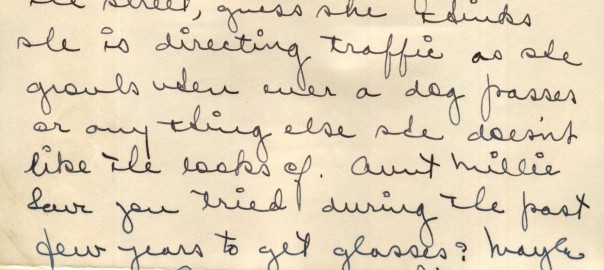 the street, guess she thinks
she is directing traffic as she
growls when ever a dog passes
or any thing else she doesn't
like the looks of. Aunt Millie
have you tried during the past
few years to get glasses? Maybe